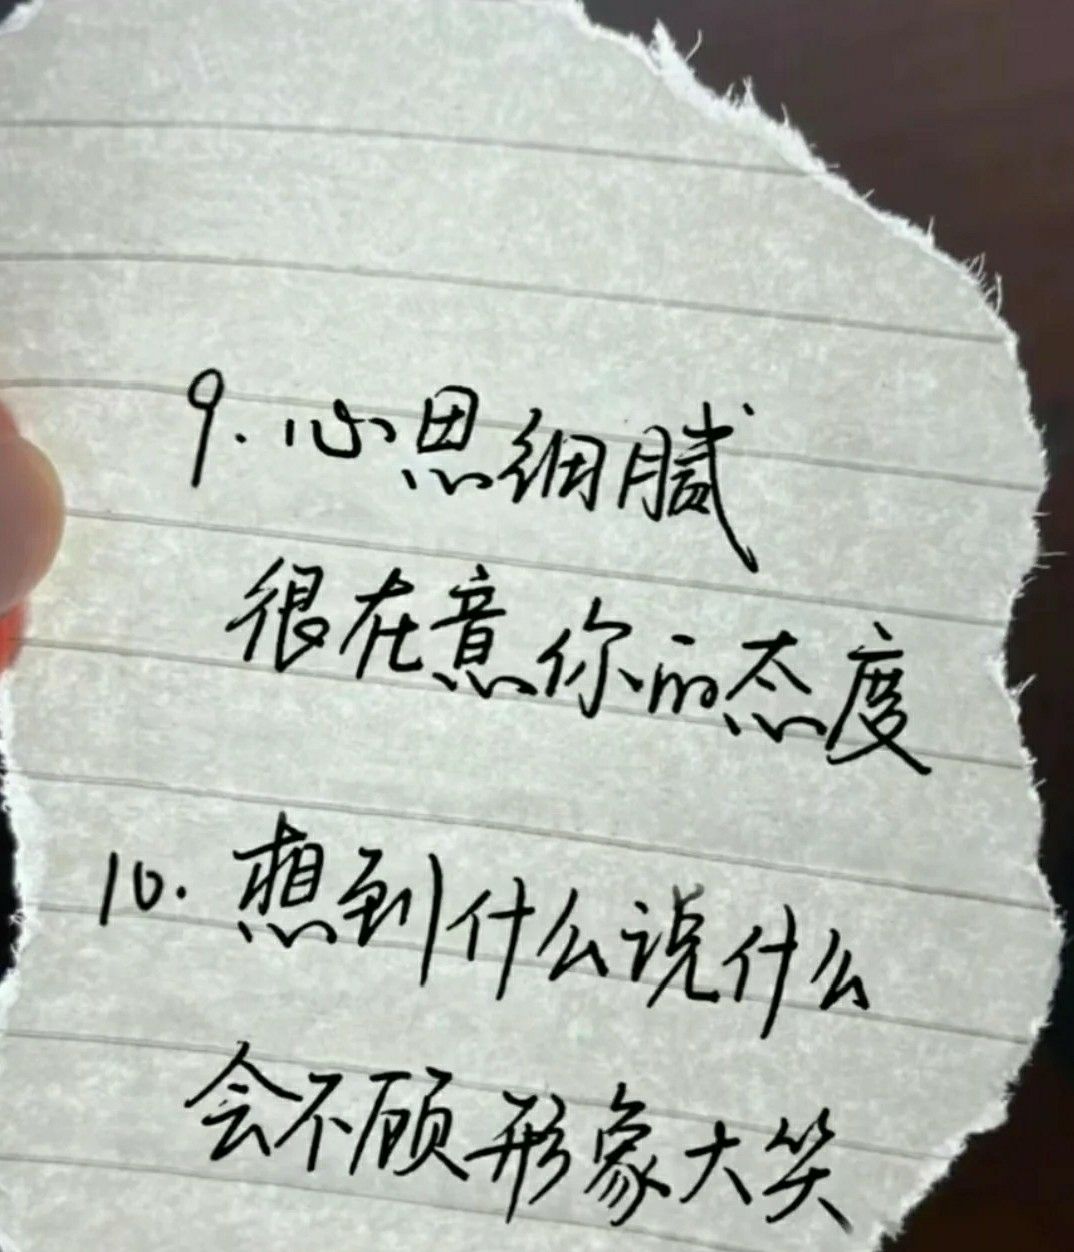 9. 心思细腻
很在意你的态度
10. 想到什么说什么
会不顾形象大笑